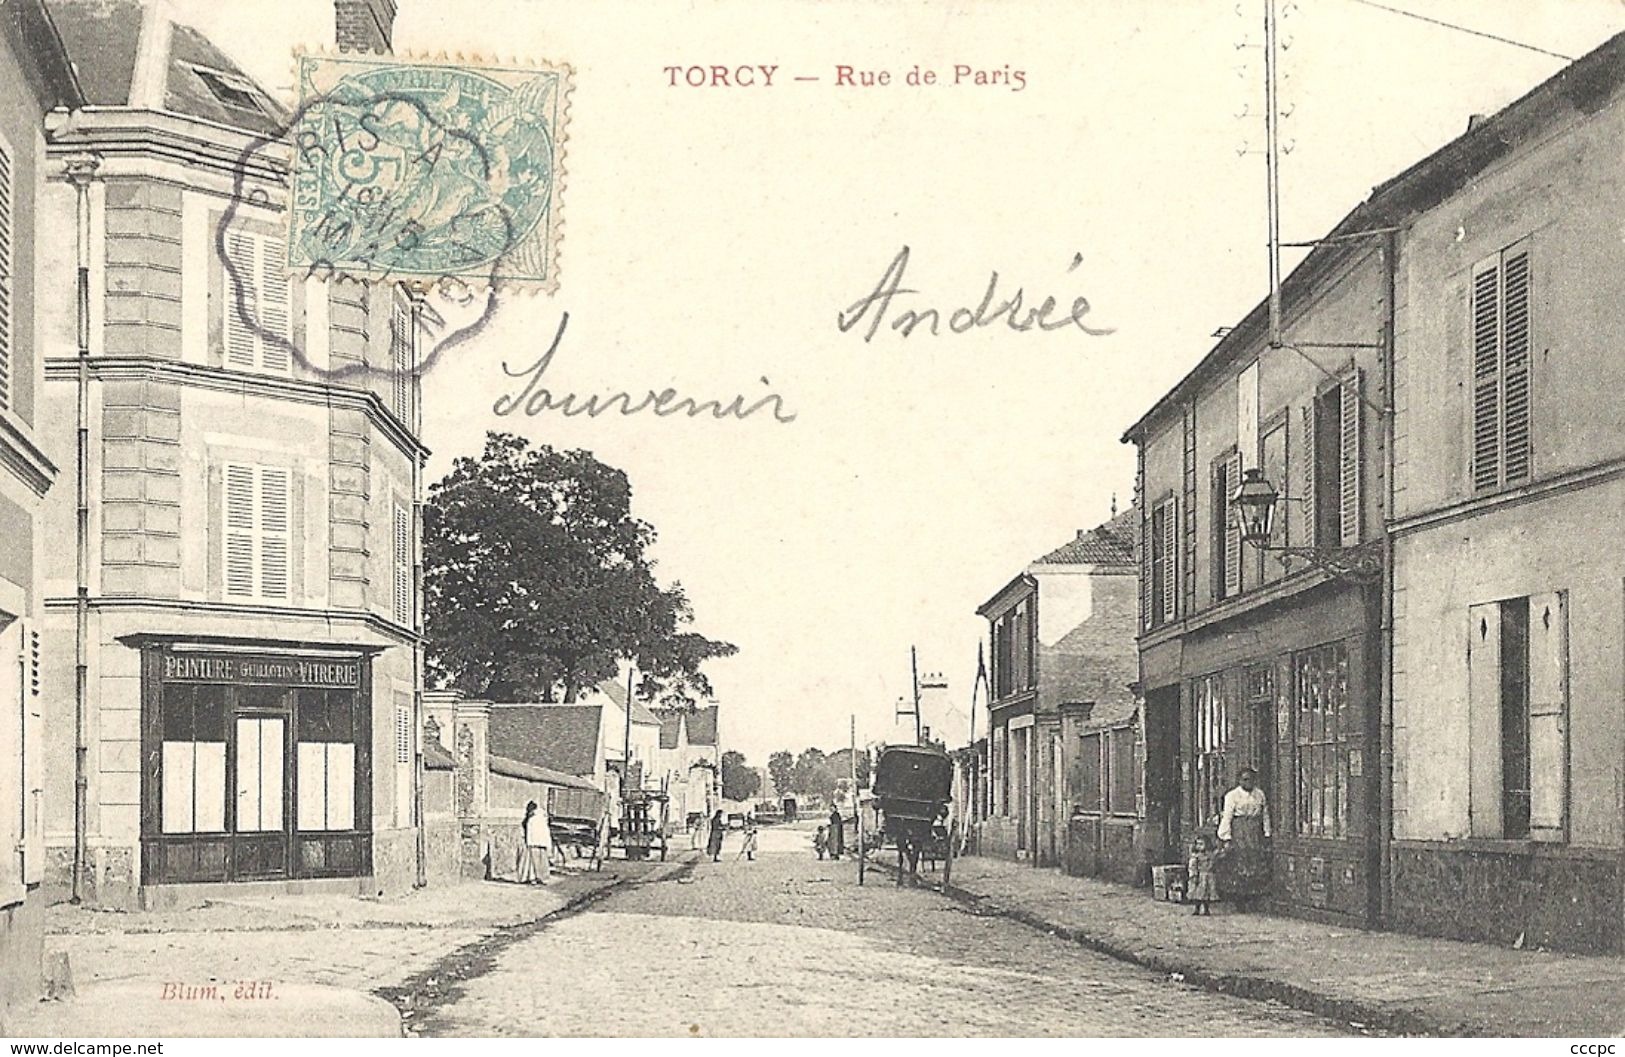 TORCY — Rue de Paris
5
PARIS A
Andrée
Souvenir
PEINTURE GUILLOTIN VITRERIE
Blum, édit.
www.delcampe.net
cccpc